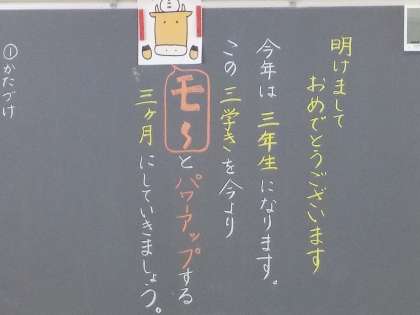 明けまして
おめでとうございます
今年は三年生になります。
この三学きを今より
モ～とパワーアップする
三ヶ月にしていきましょう。
①かたづけ